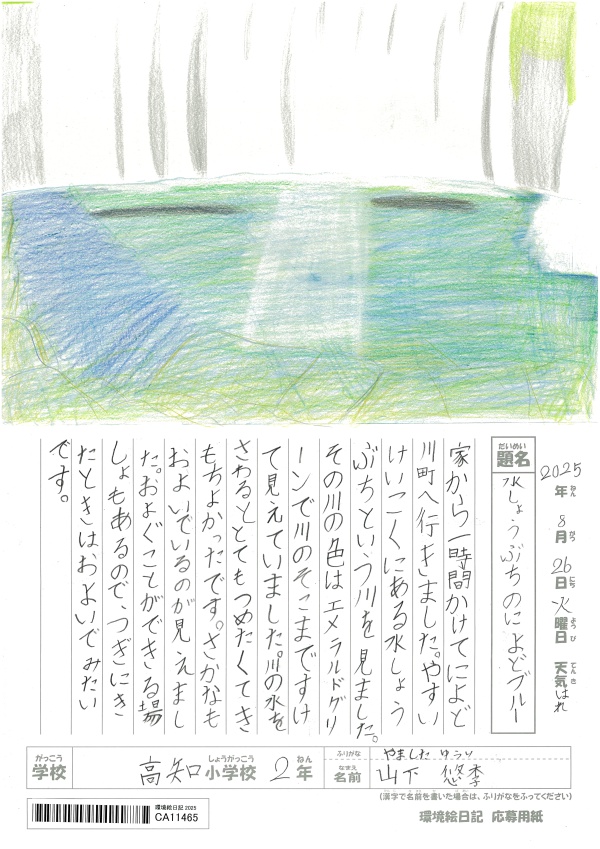 2025年 8月 26日 火曜日 天気 はれ
ねん がつ にち ようび てんき
だいめい
題名 水しょうぶちのによどブルー
家から一時間かけてによど
川町へ行きました。やすい
けいこくにある水しょう
ぶちという川を見ました。
その川の色はエメラルドグリ
ーンで川のそこまですけ
て見えていました。川の水を
さわるととてもつめたくてき
もちよかったです。さかなも
およいでいるのが見えまし
た。およぐことができる場
しょもあるので、つぎにき
たときはおよいでみたい
です。
がっこう しょうがっこう ねん
学校 高知小学校 2年
ふりがな やました ゆうり
なまえ
名前 山下 悠季
(漢字で名前を書いた場合は、ふりがなをふってください)
環境絵日記 2025
CA11465
環境絵日記 応募用紙